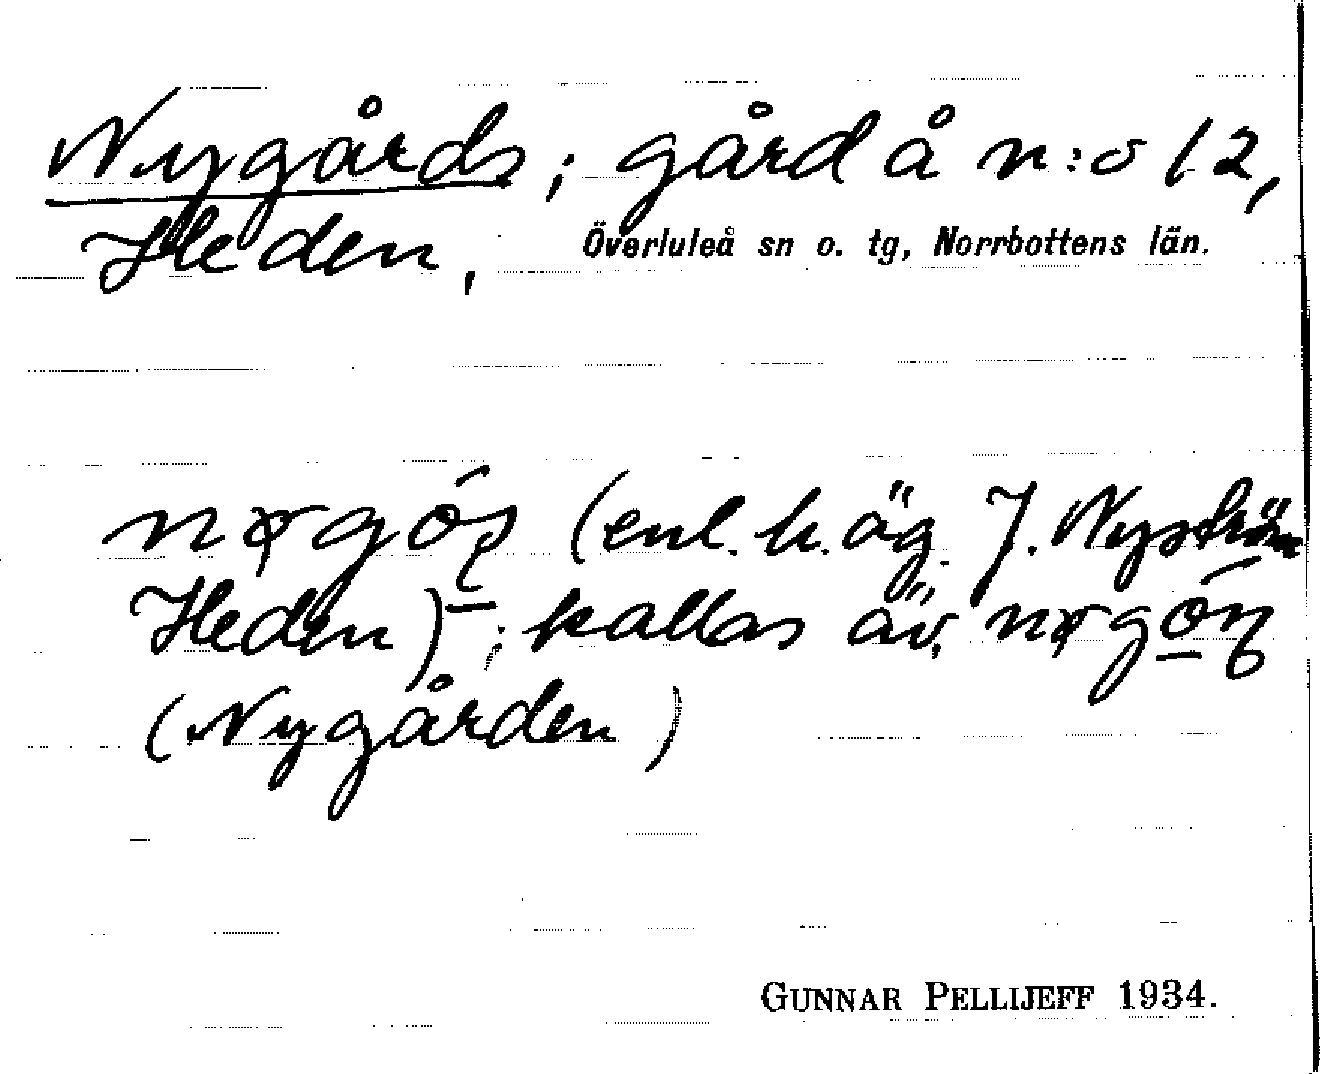 Nygårds; gård å n:o 12,
Heden, Överluleå sn o. tg, Norrbottens län.
(enl. h. äg. J. Nyström
Heden); kallas äv.
(Nygården)
GUNNAR PELLIJEFF 1934.